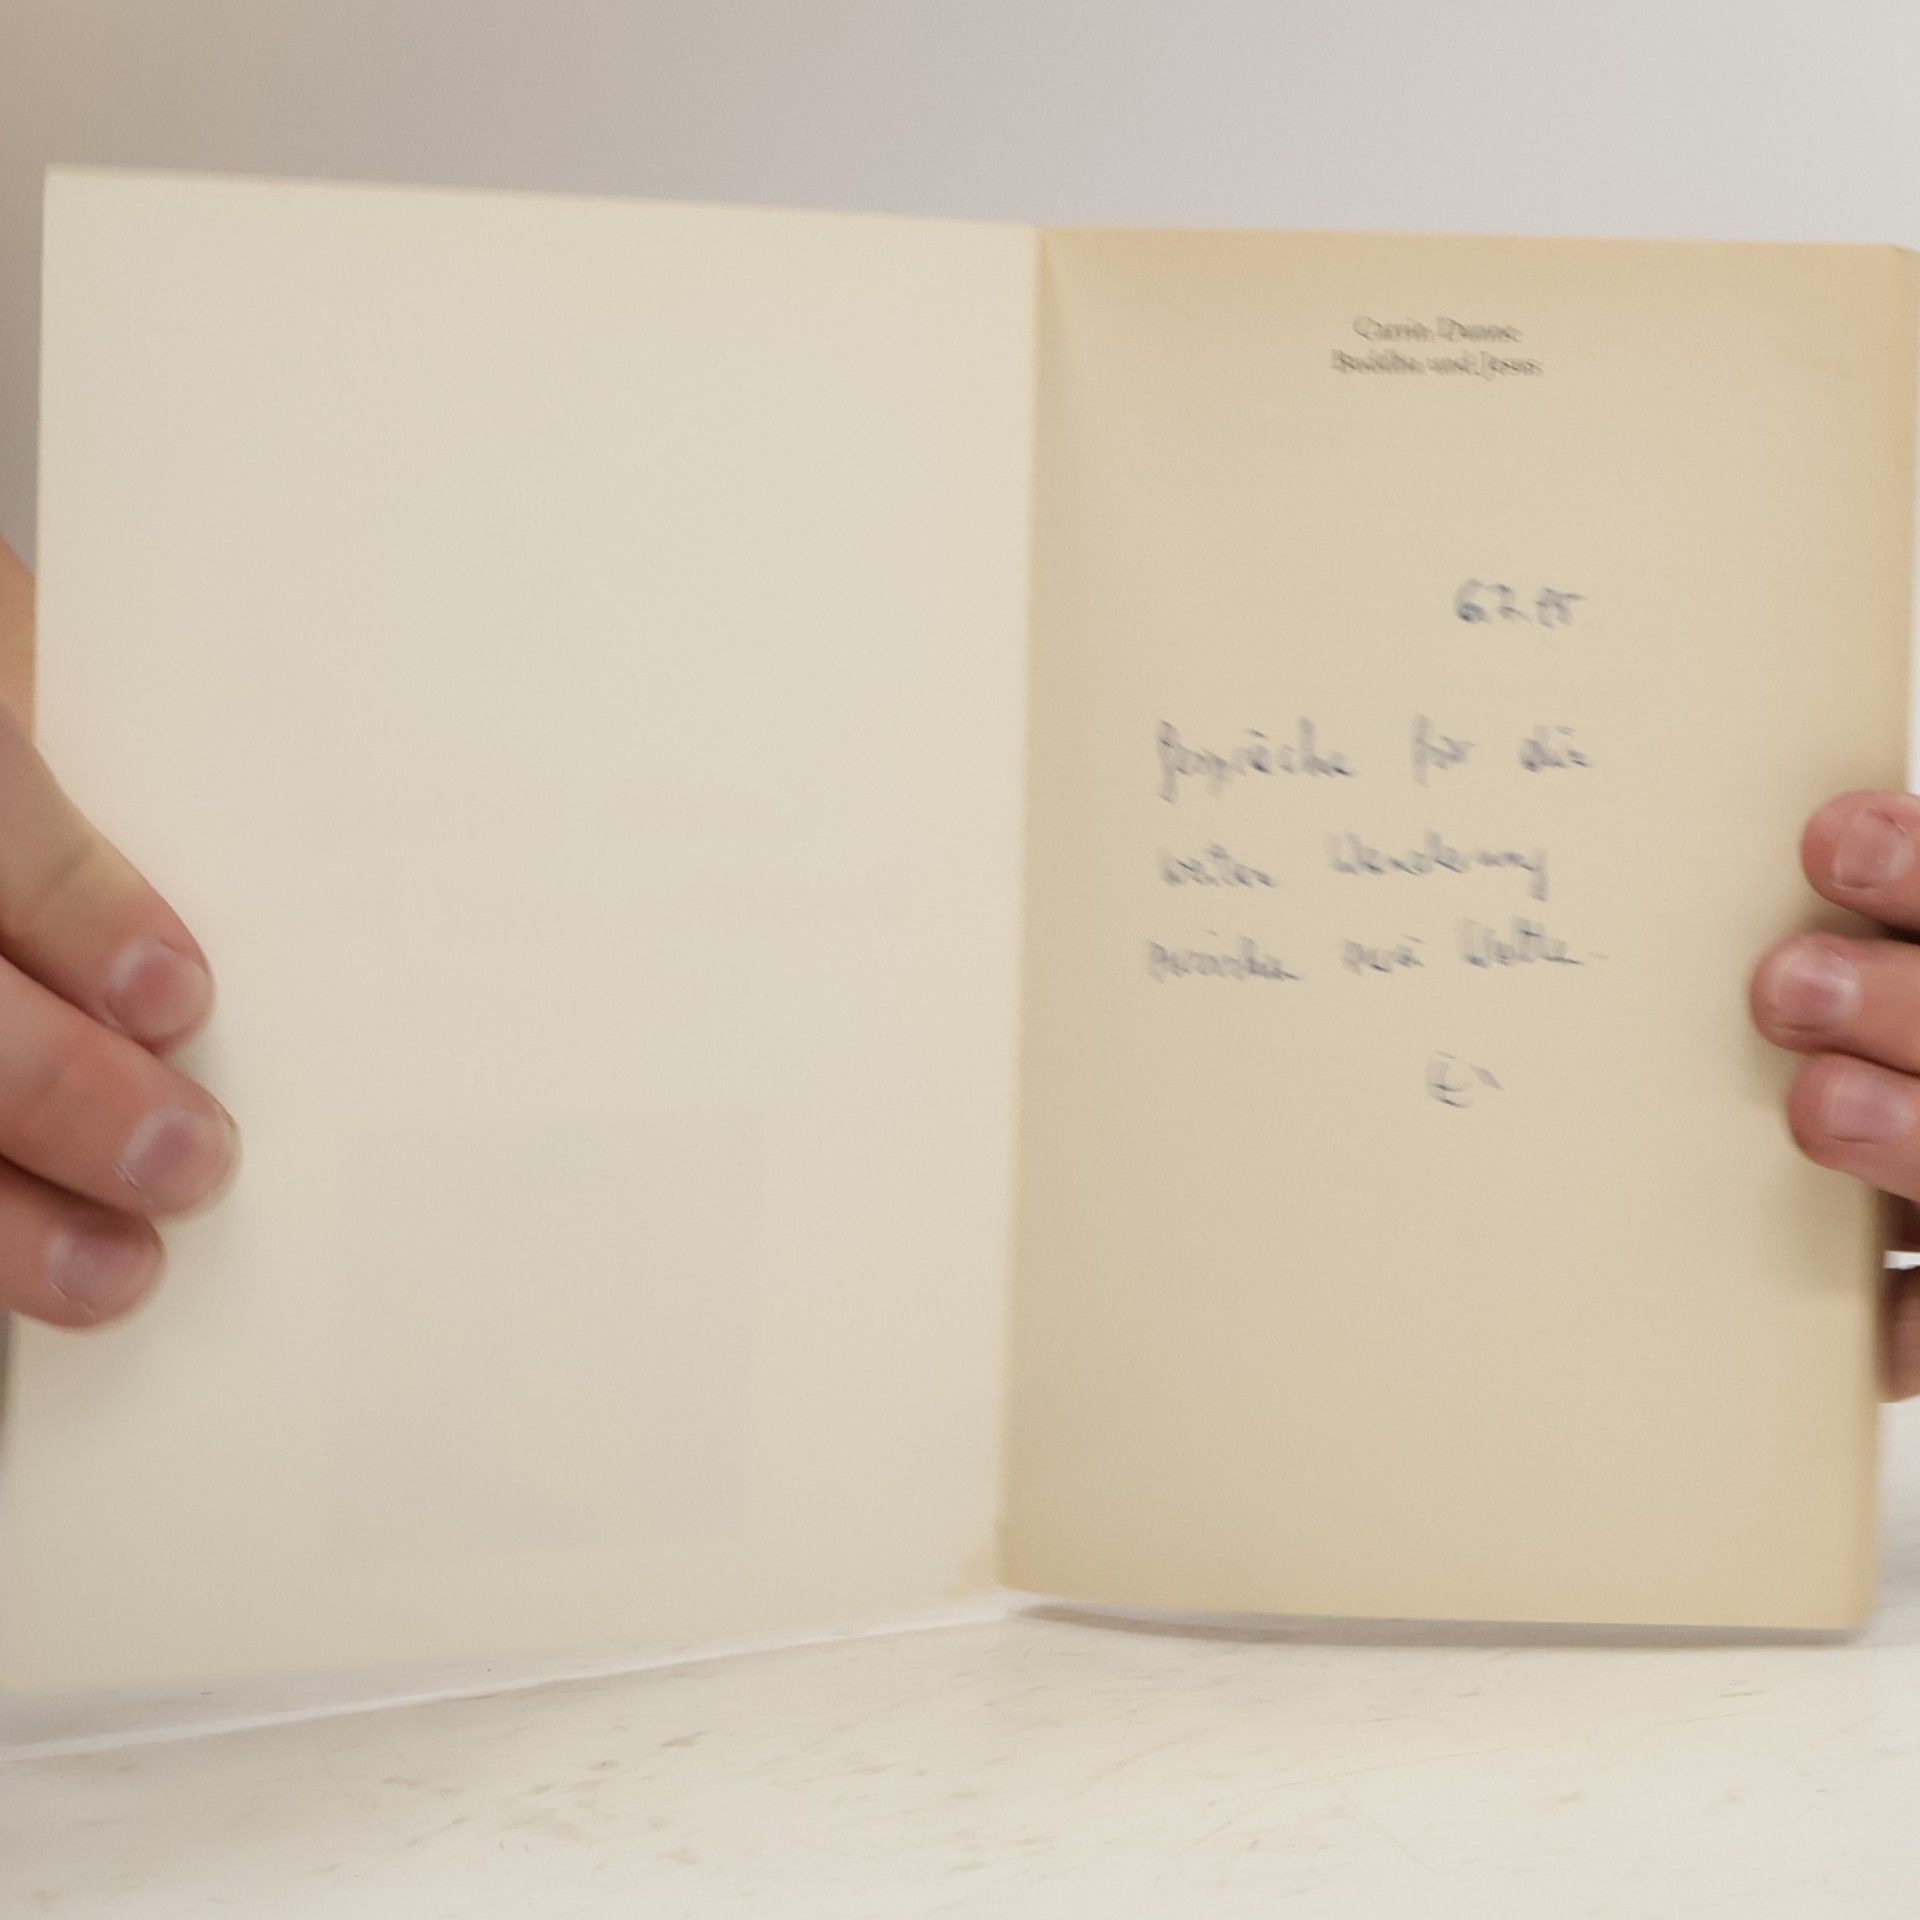 Carrin Dunne
Buddha und Jesus
Gespräche für die
weitere Wanderung
zwischen zwei Welten